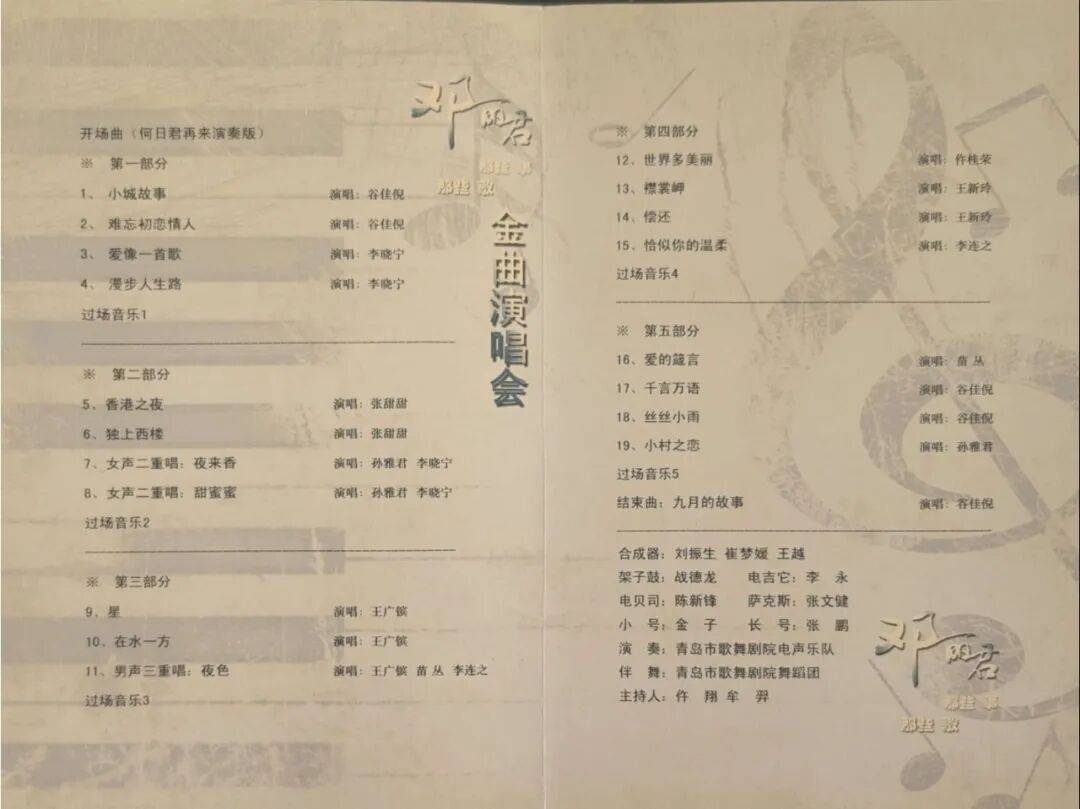 开场曲（何日君再来演奏版）
※ 第一部分
1、小城故事 演唱：谷佳倪
2、难忘初恋情人 演唱：谷佳倪
3、爱像一首歌 演唱：李晓宁
4、漫步人生路 演唱：李晓宁
过场音乐1
※ 第二部分
5、香港之夜 演唱：张甜甜
6、独上西楼 演唱：张甜甜
7、女声二重唱：夜来香 演唱：孙雅君 李晓宁
8、女声二重唱：甜蜜蜜 演唱：孙雅君 李晓宁
过场音乐2
※ 第三部分
9、星 演唱：王广镔
10、在水一方 演唱：王广镔
11、男声三重唱：夜色 演唱：王广镔 苗丛 李连之
过场音乐3
邓丽君
那些事
那些歌
金曲演唱会
※ 第四部分
12、世界多美丽 演唱：仵桂荣
13、襟裳岬 演唱：王新玲
14、偿还 演唱：王新玲
15、恰似你的温柔 演唱：李连之
过场音乐4
※ 第五部分
16、爱的箴言 演唱：苗丛
17、千言万语 演唱：谷佳倪
18、丝丝小雨 演唱：谷佳倪
19、小村之恋 演唱：孙雅君
过场音乐5
结束曲：九月的故事 演唱：谷佳倪
合成器：刘振生 崔梦媛 王越
架子鼓：战德龙 电吉它：李 永
电贝司：陈新锋 萨克斯：张文健
小 号：金 子 长 号：张 鹏
演 奏：青岛市歌舞剧院电声乐队
伴 舞：青岛市歌舞剧院舞蹈团
主持人：仵 翔 牟 羿
邓丽君
那些事
那些歌